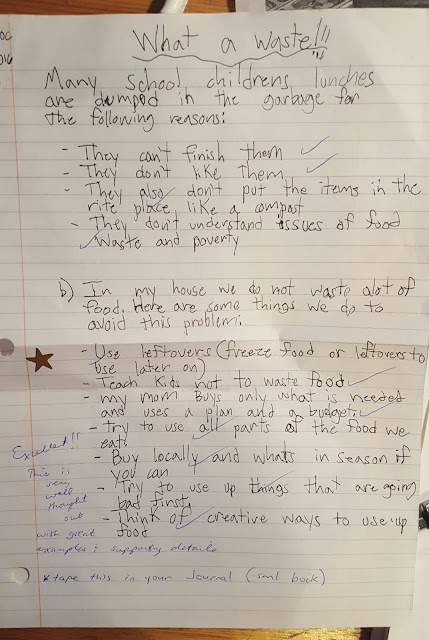 What a waste!!!
Many school childrens lunches
are dumped in the garbage for
the following reasons:
- They can't finish them
- They don't like them
- They also don't put the items in the
rite place like a compost
- They don't understand issues of food
waste and poverty
b) In my house we do not waste alot of
food. Here are some things we do to
avoid this problem:
- Use leftovers (freeze food or leftovers to
use later on)
- Teach Kids not to waste food
- my mom Buys only what is needed
and uses a plan and a budget.
- Try to use all parts of the food we
eat.
- Buy locally and whats in season if
you can
- Try to use up things that are going
bad first
- Think of creative ways to use up
food
Excellent!!
This is
very
well
thought
out
with great
examples & supporting details
* tape this in your Journal (sml book)